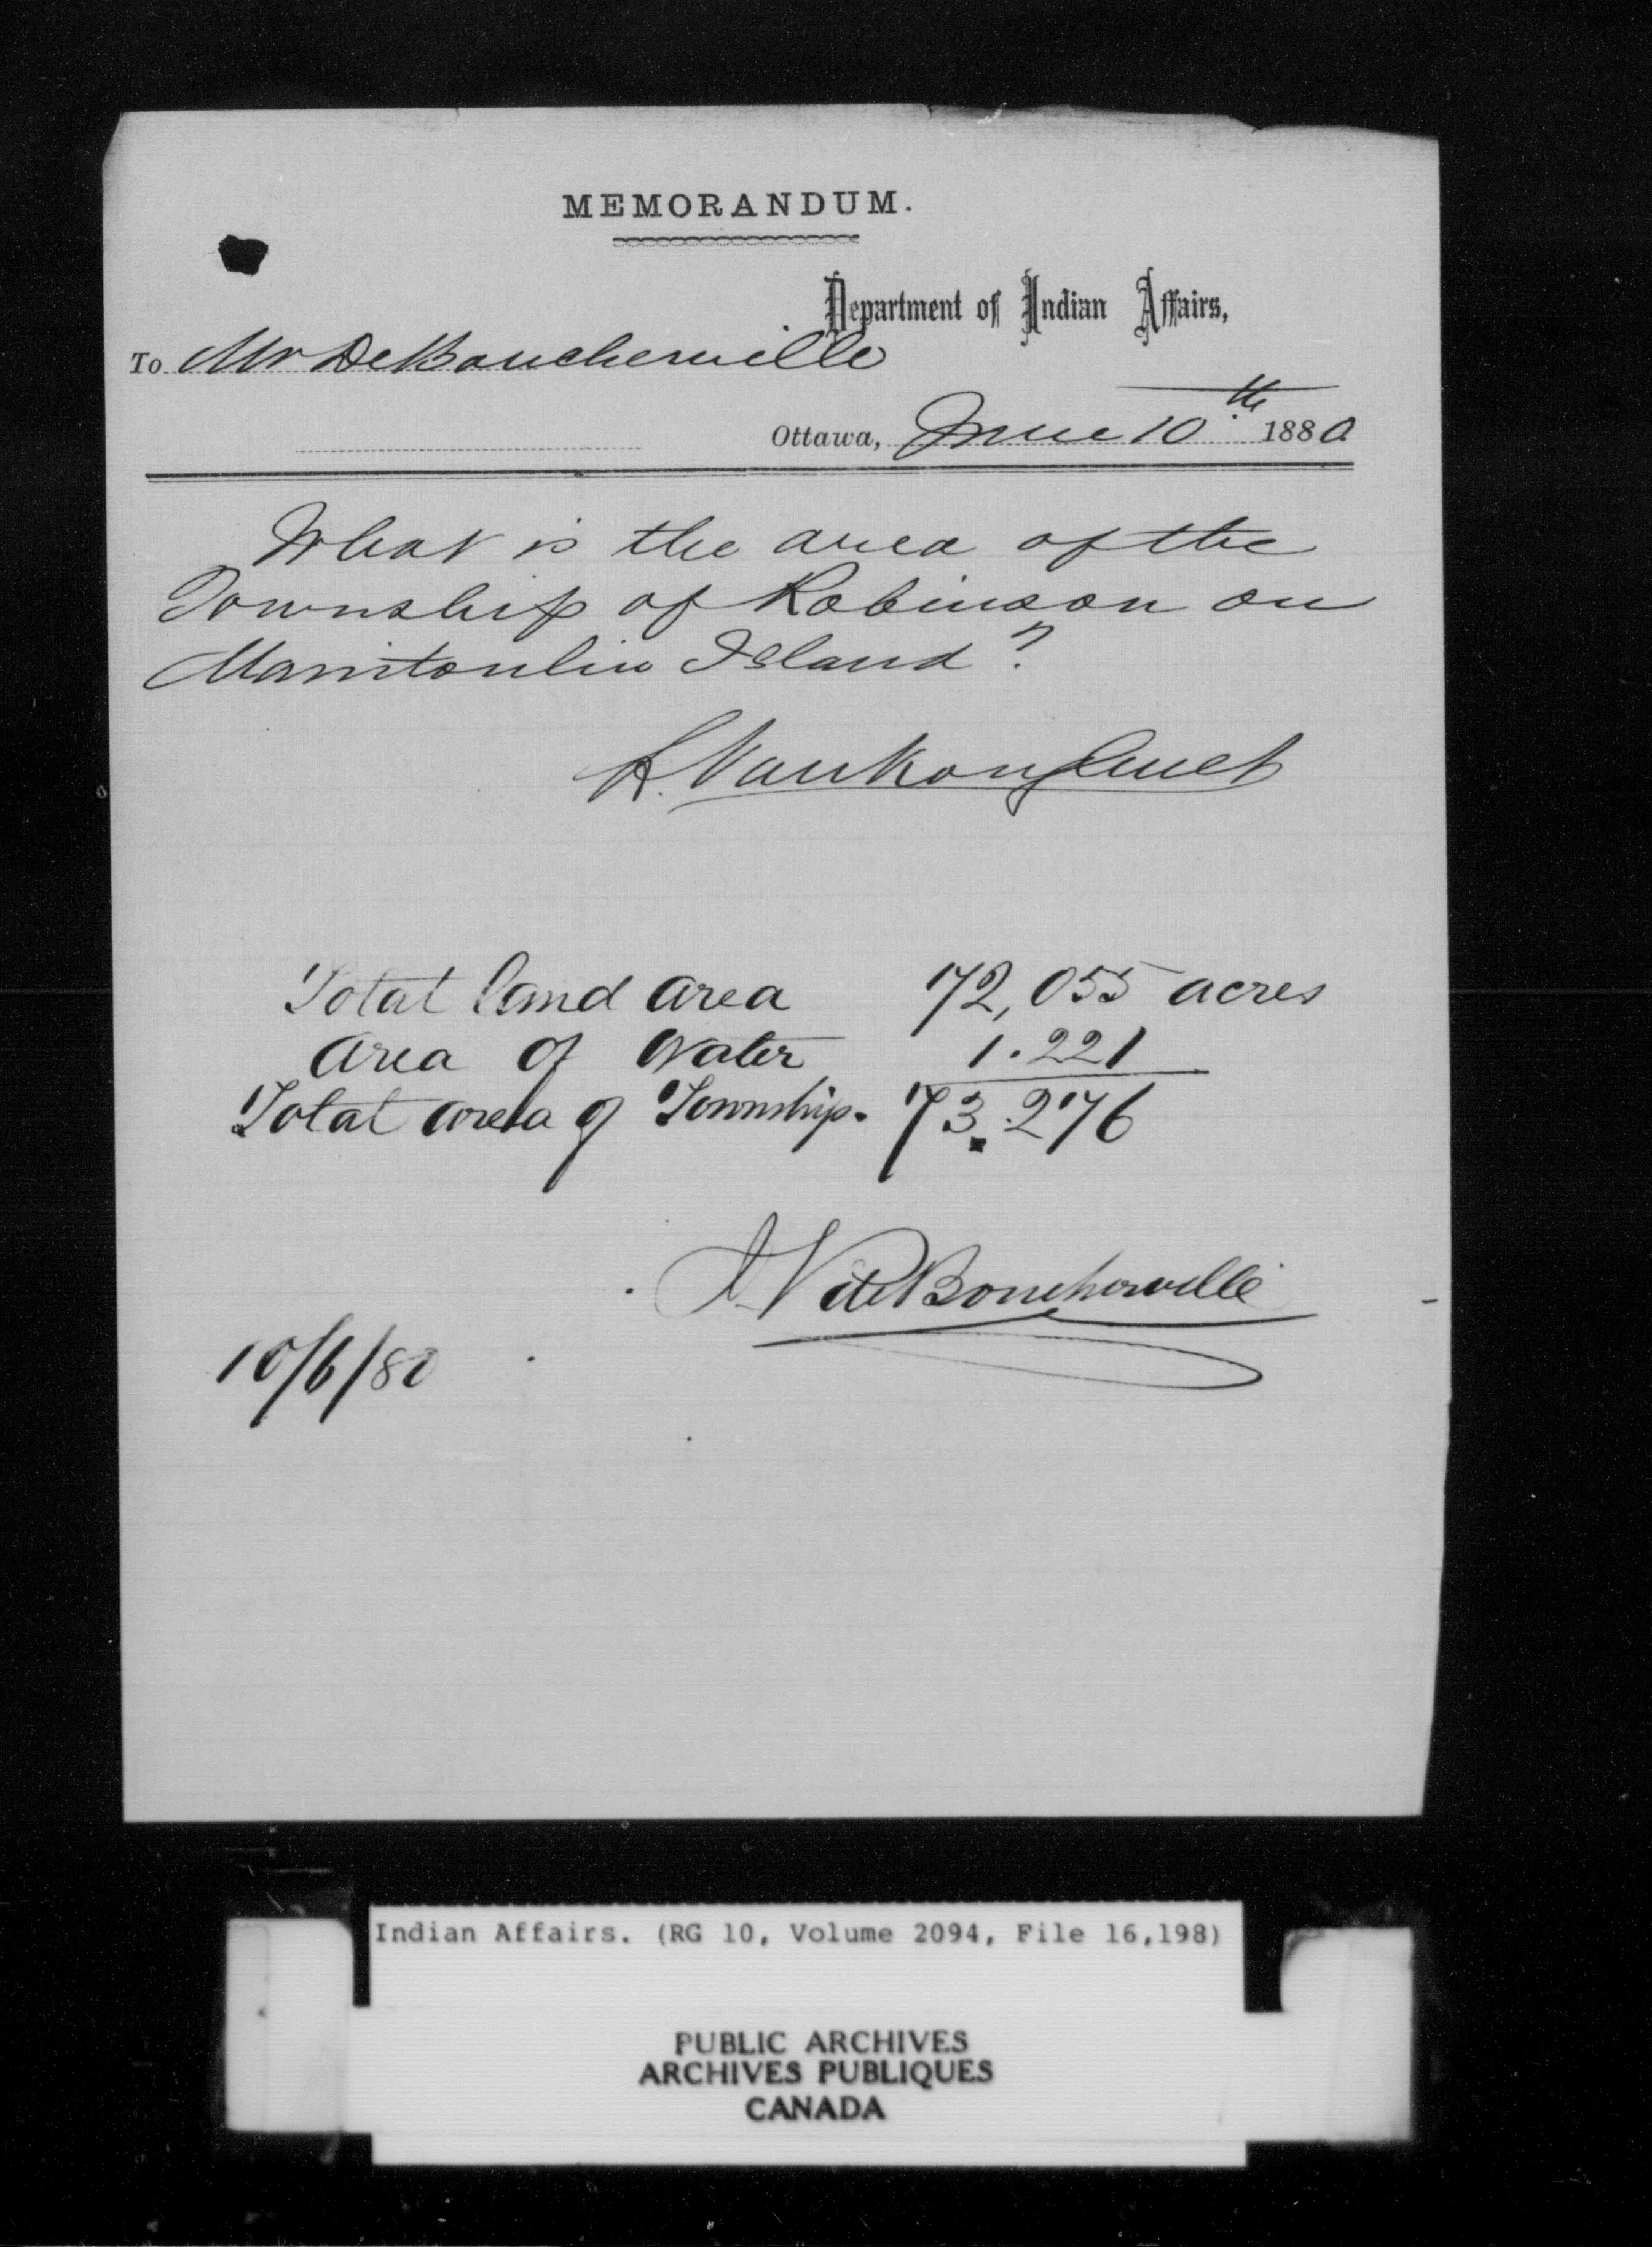 MEMORANDUM.
Department of Indian Affairs,
To Mr DeBoucherville
Ottawa, June 10th 1880
What is the area of the
Township of Robinson on
Manitoulin Island?
L. VanKoughnet
Total land area 72,055 acres
Area of Water 1.221
Total area of Township. 73.276
J V de Boucherville
10/6/80
Indian Affairs. (RG 10, Volume 2094, File 16,198)
PUBLIC ARCHIVES
ARCHIVES PUBLIQUES
CANADA